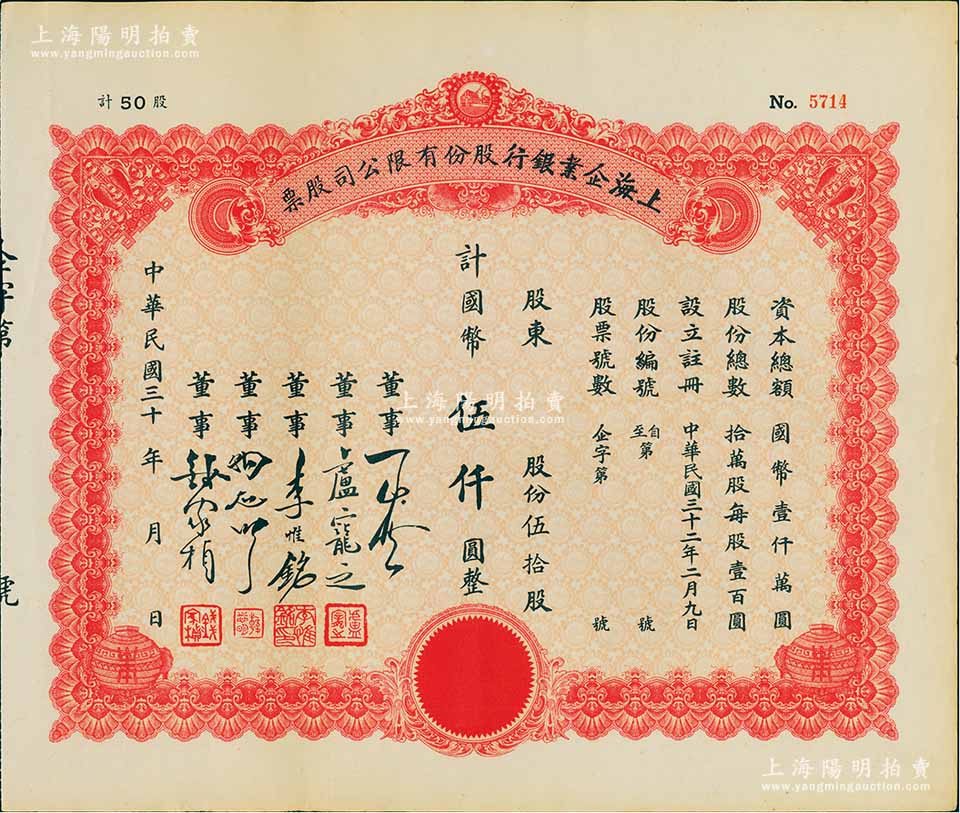 上海陽明拍賣
www.yangmingauction.com
計 50 股
No. 5714
上海企業銀行股份有限公司股票
資本總額 國幣壹仟萬圓
股份總數 拾萬股每股壹百圓
設立註冊 中華民國三十二年二月九日
股份編號 自至第 號
股票號數 企字第 號
股東 股份伍拾股
計國幣 伍仟 圓整
董事
董事 盧寵之
董事 李惟銘
董事
董事 錢家楨
中華民國三十 年 月 日
字第
號
上海陽明拍賣
www.yangmingauction.com
上海陽明拍賣
www.yangmingauction.com